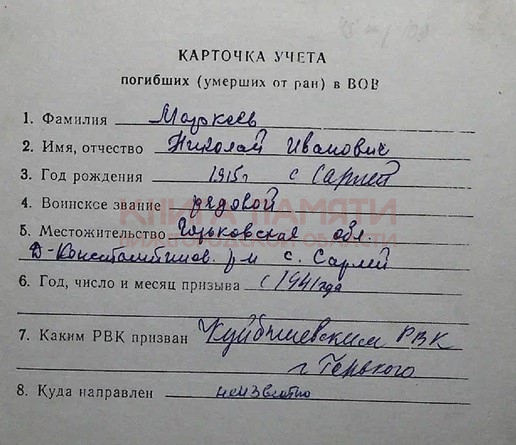 КАРТОЧКА УЧЕТА
погибших (умерших от ран) в ВОВ
1. Фамилия Маркеев
2. Имя, отчество Николай Иванович
3. Год рождения 1915г с Сарлей
4. Воинское звание рядовой
КНИГА ПАМЯТИ
НИЖЕГОРОДСКОЙ ОБЛАСТИ
5. Местожительство Горьковская обл.
Д-Константинов. р-н с. Сарлей
6. Год, число и месяц призыва с 1941 года
7. Каким РВК призван Куйбышевским РВК
г Горького
8. Куда направлен неизвестно